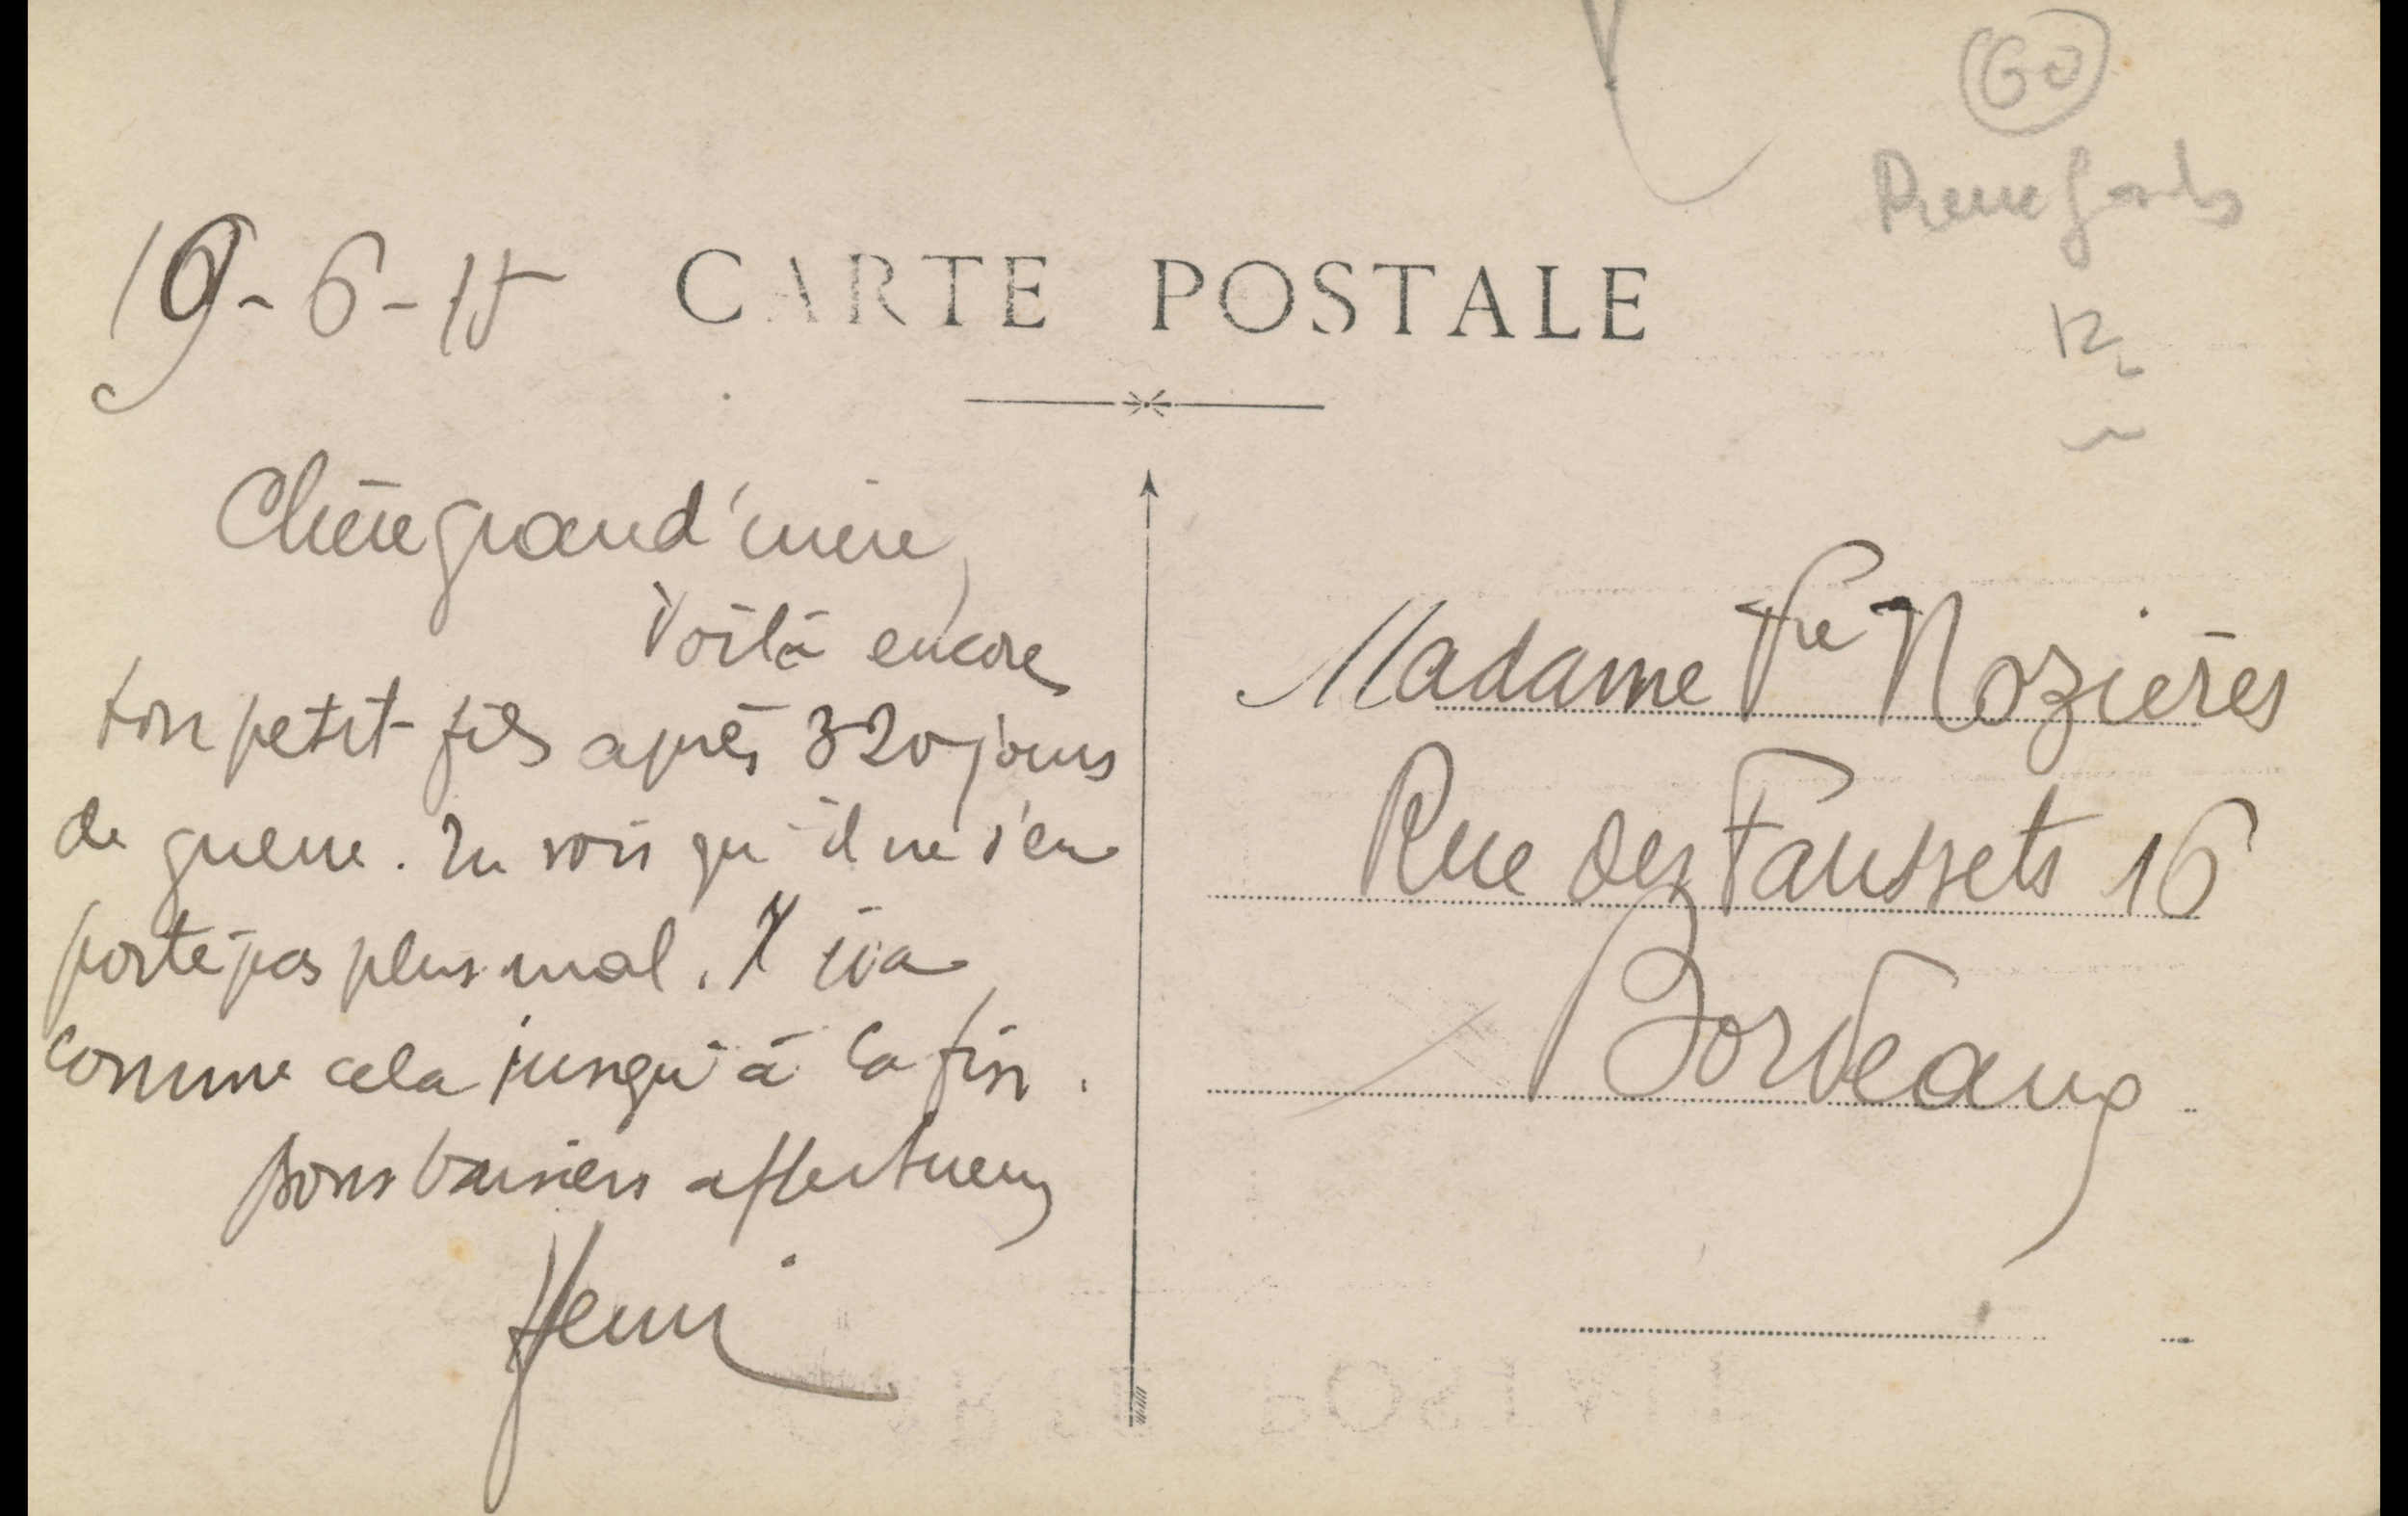 60
Pierrefonds
12
19-6-15 CARTE POSTALE
Chère grand'mère,
Voilà encore
ton petit fils après 320 jours
de guerre. Tu vois qu'il ne s'en
porte pas plus mal. Il ira
comme cela jusqu'à la fin.
Bons baisers affectueux
Henri
Madame Vve Nozières
Rue des Faussets 16
Bordeaux